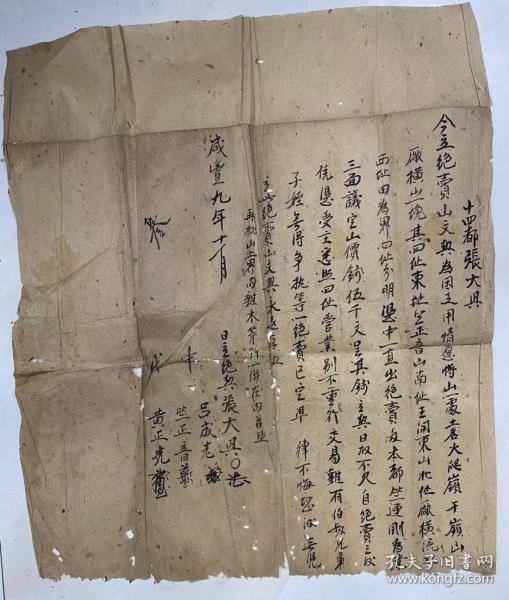 十四都張大興
今立絕賣山文契為因乏用情愿將山處土名大坵嶺下嶺山
廠橫山一塊其四址東址竺正音山南址王開東山北址廠橫流
西址田為界四址分明憑中一直出絕賣與本都竺連剛為
三面議定山價錢伍千文呈其錢立契日收不欠自絕賣之後
任憑受主悉照四址管業別不重行交易雖有伯叔兄弟
子姪無得爭执等一絕賣已定準 律不悔恐後無憑
立此絕賣山文契永遠存照
再批山界內雜木茅竹一併在內
咸豐九年十一月 日立絕契張大興
中 呂成老
竺正音
代 黄正先
孔夫子旧书网
www.kongfz.com